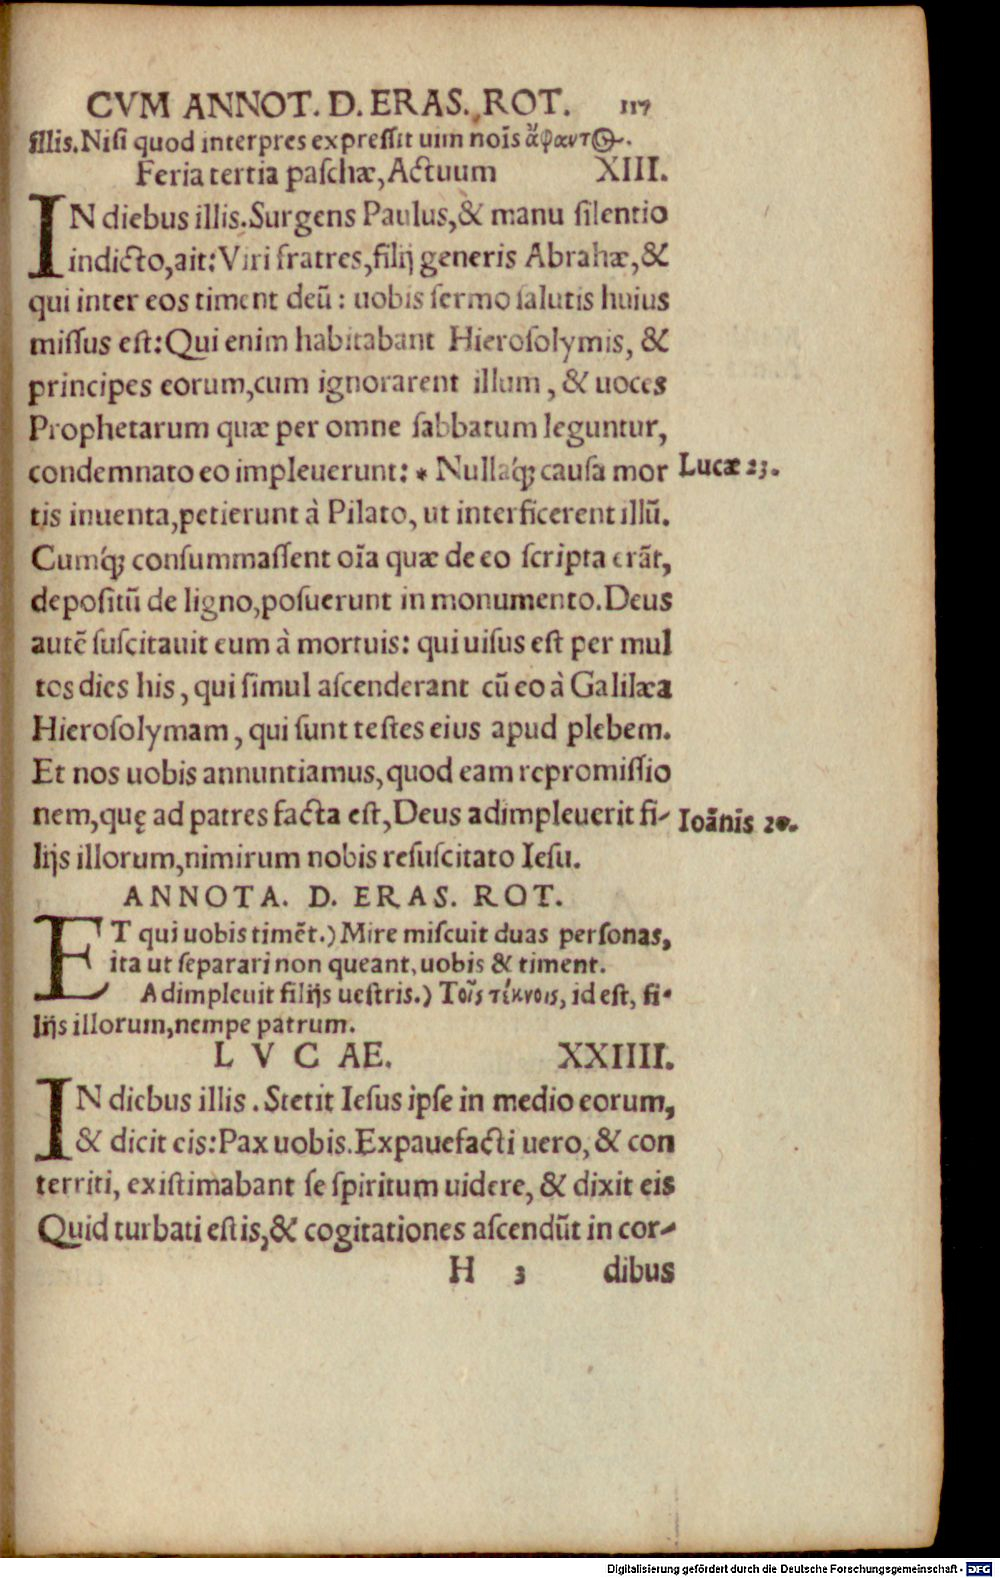 CVM ANNOT. D. ERAS. ROT. 117
illis. Nisi quod interpres expressit uim noīs ἄφαντ@.
Feria tertia paschæ, Actuum XIII.
IN diebus illis. Surgens Paulus, & manu silentio
indicto, ait: Viri fratres, filij generis Abrahæ, &
qui inter eos timent deū: uobis sermo salutis huius
missus est: Qui enim habitabant Hierosolymis, &
principes eorum, cum ignorarent illum, & uoces
Prophetarum quæ per omne sabbatum leguntur,
condemnato eo impleuerunt: * Nullaq́; causa mor Lucæ 23.
tis inuenta, petierunt à Pilato, ut interficerent illū.
Cumq́; consummassent oīa quæ de eo scripta erāt,
depositū de ligno, posuerunt in monumento. Deus
autē suscitauit eum à mortuis: qui uisus est per mul
tos dies his, qui simul ascenderant cū eo à Galilæa
Hierosolymam, qui sunt testes eius apud plebem.
Et nos uobis annuntiamus, quod eam repromissio
nem, quę ad patres facta est, Deus adimpleuerit fi- Ioānis 20.
lijs illorum, nimirum nobis resuscitato Iesu.
ANNOTA. D. ERAS. ROT.
ET qui uobis timēt.) Mire miscuit duas personas,
ita ut separari non queant, uobis & timent.
Adimpleuit filijs uestris.) Τοῖς τέκνοις, id est, fi-
lijs illorum, nempe patrum.
LVCAE. XXIIII.
IN diebus illis. Stetit Iesus ipse in medio eorum,
& dicit eis: Pax uobis. Expauefacti uero, & con
territi, existimabant se spiritum uidere, & dixit eis
Quid turbati estis, & cogitationes ascendūt in cor-
H 3 dibus
Digitalisierung gefördert durch die Deutsche Forschungsgemeinschaft - DFG